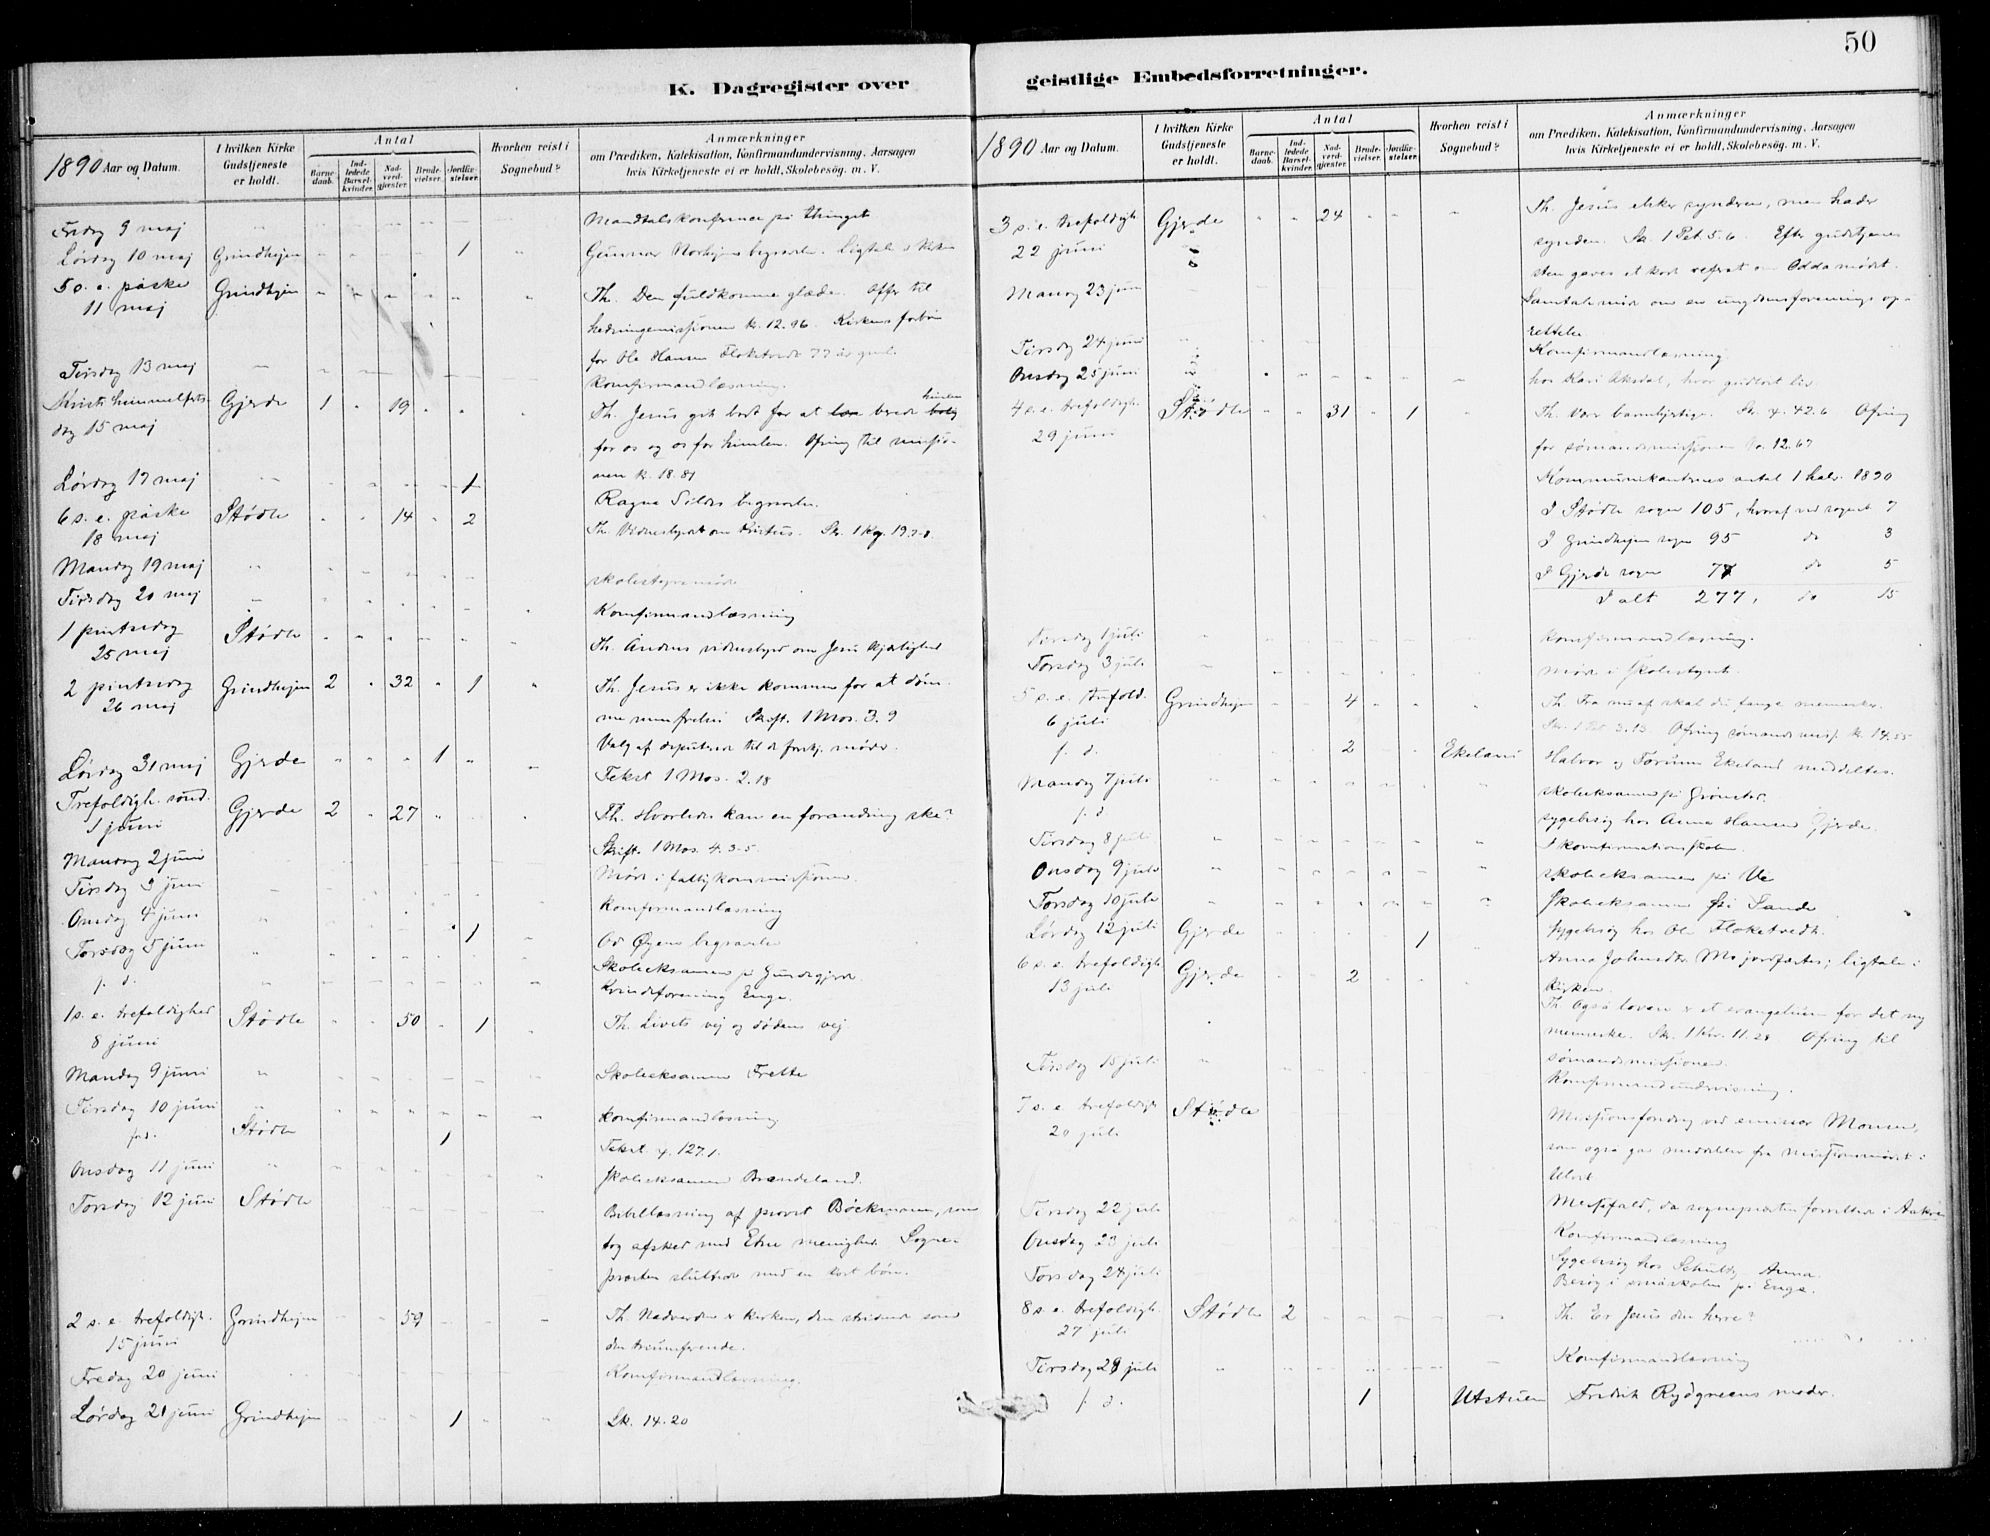 50
K. Dagregister over
geistlige Embedsforretninger.
1890 Aar og Datum.
I hvilken Kirke Gudstjeneste er holdt.
Antal
Barnedaab.
Indledede Barselkvinder.
Nadverdgjester.
Brudevielser.
Jordfæstelser.
Hvorhen reist i Sognebud?
Anmærkninger
om Prædiken, Katekisation, Konfirmandundervisning, Aarsagen
hvis Kirketjeneste ei er holdt, Skolebesög, m. V.
Fredag 9 maj
Lørdag 10 maj Grindhejm 1 Gunnar begravelse. Ligtale i kirken
5 s. e. påske Grindhejm Th. Den fuldkomne glæde. Offer til
11 maj hedningemissionen kr. 12.96. Kirkens forbøn
for Ole Hansen Floketvedt 77 år gml.
Tirsdag 13 maj Konfirmandlæsning.
Kristi himmelfarts Gjerde 1 19 Th. Jesus gik bort for at berede himlen
dag 15 maj for os og os for himlen. Ofring til missio-
nen kr. 18.81
Lørdag 17 maj 1 Ragna begravelse.
6 s. e. påske Stødle 14 2 Th. Vidnesbyrd om Kristus. Sk. 1 Kg. 19.
18 maj
Mandag 19 maj skolestyremøde
Tirsdag 20 maj Konfirmandlæsning
1 pintsedag Stødle Th. Åndens vidnesbyrd om Jesu kjærlighed
25 maj
2 pintsedag Grindhejm 2 32 1 Th. Jesus er ikke kommen for at døm-
26 maj me men frelse Skift. 1 Mos. 3.9
Valg af deputerede til møde.
Lørdag 31 maj Gjerde 1 Tekst 1 Mos. 2.18
Trefoldigh. sønd. Gjerde 2 27 Th. Hvorledes kan en forandring ske?
1 juni Skift. 1 Mos. 4.3-5.
Mandag 2 juni Møde i fattigkommissionen.
Tirsdag 3 juni Konfirmandlæsning
Onsdag 4 juni 1 begravelse
Torsdag 5 juni Skoleeksamen på Gundegjerde
f. d. Kvindeforening Enge.
1 s. e. trefoldighed Stødle 50 1 Th. Livets vej og dødens vej
8 juni
Mandag 9 juni Skoleeksamen Frette
Tirsdag 10 juni Konfirmandlæsning
f. d. Stødle 1 Tekst 127.1.
Onsdag 11 juni Skoleeksamen
Torsdag 12 juni Stødle Bibellæsning af provst Böckmann, som
tog afsked med Etne menighed. Sogne-
præsten sluttede med en kort bøn.
2 s. e. trefoldigh. Grindhejm 59 Th. Nadverden & kirken, den stridende som
15 juni den triumferende.
Fredag 20 juni Konfirmandlæsning.
Lørdag 21 juni Grindhejm 1 Sk. 14.20
1890 Aar og Datum.
I hvilken Kirke Gudstjeneste er holdt.
Antal
Barnedaab.
Indledede Barselkvinder.
Nadverdgjester.
Brudevielser.
Jordfæstelser.
Hvorhen reist i Sognebud?
Anmærkninger
om Prædiken, Katekisation, Konfirmandundervisning, Aarsagen
hvis Kirketjeneste ei er holdt, Skolebesög, m. V.
3 s. e. trefoldigh Gjerde 24 Th. Jesus elsker synderen, men hader
22 juni synden. Sk. 1 Pet. 5.6. Efter gudstjene-
sten gaves et kort referat om Oddamødet.
Mandag 23 juni Samtalemøde om en ungdomsforenings op-
rettelse
Tirsdag 24 juni Konfirmandlæsning
Onsdag 25 juni hos Kari Aksdal, hvor
4 s. e. trefoldigh. Stødle 31 1 Th. Vær barmhjertige. Ofring
29 juni for sømandsmissionen kr. 12.67
Kommunikanternes antal 1 halv. 1890
I Stødle sogn 105, hvoraf ved sognebud 7
I Grindhejm sogn 95 do 3
I Gjerde sogn 77 do 5
I alt 277, do 15
Tirsdag 1 juli Konfirmandlæsning.
Torsdag 3 juli Møde i Skolestyret.
5 s. e. trefold. Grindhejm 4 Th. Fra nu af skal du fange mennesker.
6 juli Sk. 1 Pet 3.15. Ofring sømandsmis. kr. 14.55
f. d. 2 Ekeland Halvor og Ekeland meddeltes.
Mandag 7 juli skoleeksamen på Grønstad.
f. d. sygebesøg hos Anna Hansen Gjerde.
Tirsdag 8 juli I konfirmationsskolen.
Onsdag 9 juli skoleeksamen på
Torsdag 10 juli Skoleeksamen på Sande
Lørdag 12 juli Gjerde 1 Sygebesøg hos Ole Floketvedt.
6 s. e. trefoldigh Gjerde 2 Anna Johnsdtr. Mo jordfæstes; ligtale i
13 juli kirken.
Th. Også loven er et evangelium for det ny
menneske. Sk. 1 Kor. 11.28 Ofring til
sømandsmissionen.
Tirsdag 15 juli Konfirmandundervisning.
7 s. e. trefoldigh Stødle Missionsforedrag ved emissær Monsen,
20 juli som også gav meddelelser fra missionsmødet i
Tirsdag 22 juli Messefald, da sognepræsten forrettede i
Onsdag 23 juli Konfirmandlæsning
Torsdag 24 juli Sygebesøg hos
Besøg i småskolen på Enge.
8 s. e. trefoldigh. Stødle 2 Th. Er Jesus din herre?
27 juli
Tirsdag 29 juli Konfirmandlæsning
f. d. 1 Utstuen Fredrik Rydgreens moder.